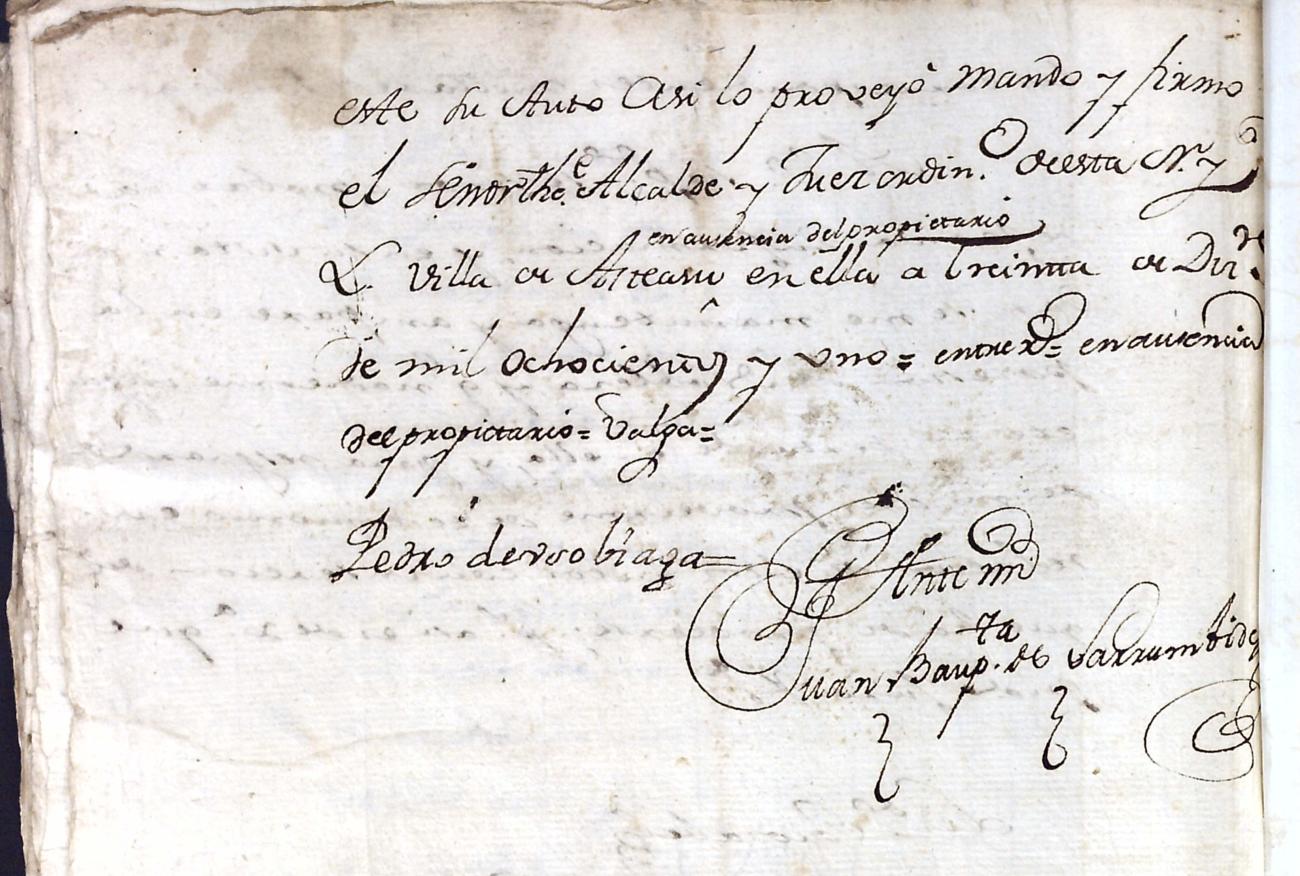 este su Auto Asi lo proveyó mando y firmo
el Señor the.e Alcalde y Juez ordin.o de esta N. y
en ausencia del propietario
L. Villa de Asteasu en ella a treinta de Diz.re
de mil ochocientos y uno = entrer.do = en ausencia
del propietario = Valga =
Pedro de Usobiaga
Ante mi
Juan Baup.ta de Larrumbide